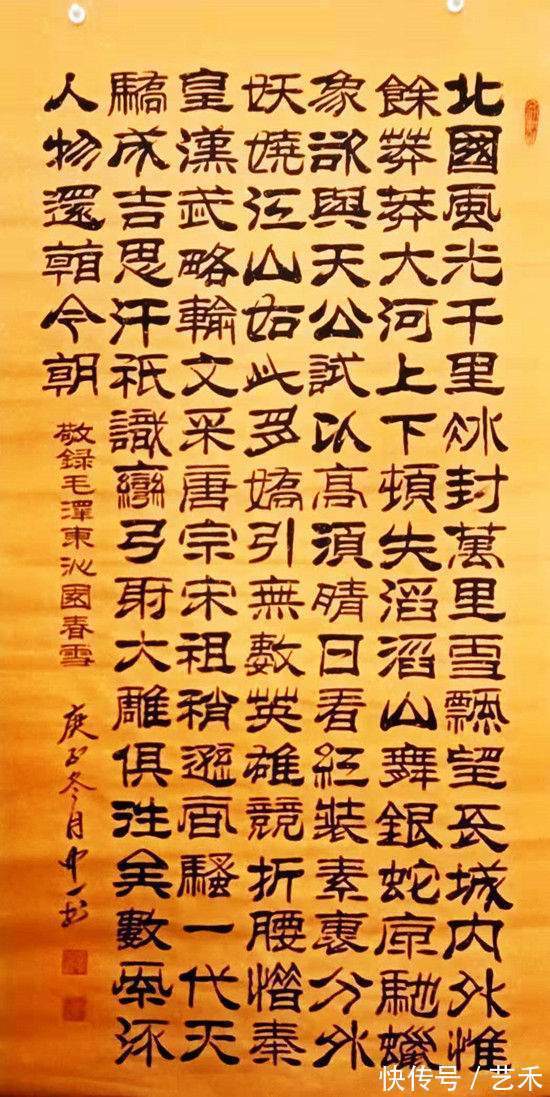 北國風光千里冰封萬里雪飄望長城內外惟
餘莽莽大河上下頓失滔滔山舞銀蛇原馳蠟
象欲與天公試以高須晴日看紅裝素裹分外
妖嬈江山如此多嬌引無數英雄競折腰惜秦
皇漢武略輸文采唐宗宋祖稍遜風騷一代天
驕成吉思汗祇識彎弓射大雕俱往矣數風流
人物還看今朝
敬録毛澤東沁園春雪
庚子冬月中一书
快传号/艺禾